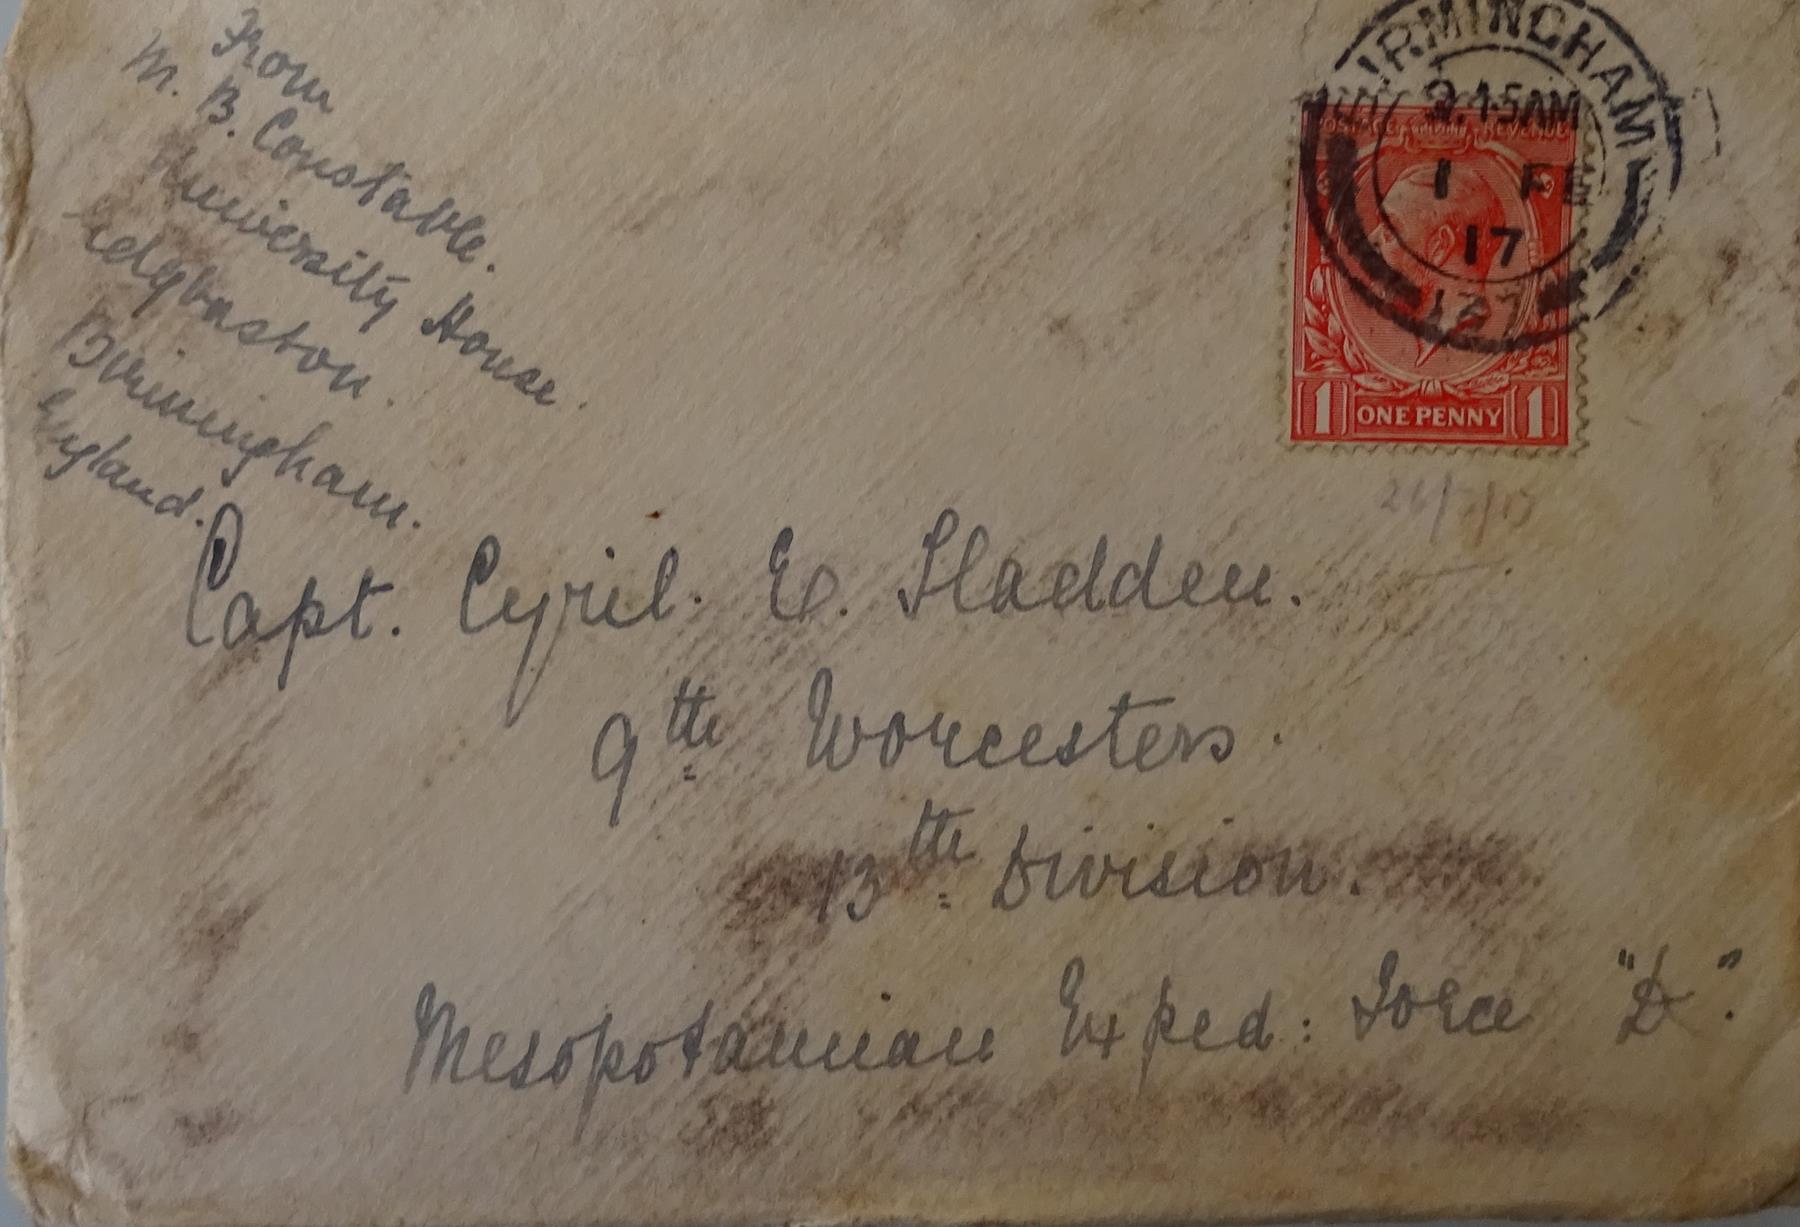 From
M. B. Constable.
University House.
Edgbaston.
Birmingham.
England.
BIRMINGHAM
9.15AM
1 FE
17
POSTAGE REVENUE
1 ONE PENNY 1
Capt. Cyril. E. Sladden.
9th Worcesters.
13th Division.
Mesopotamian Exped: Force "D".